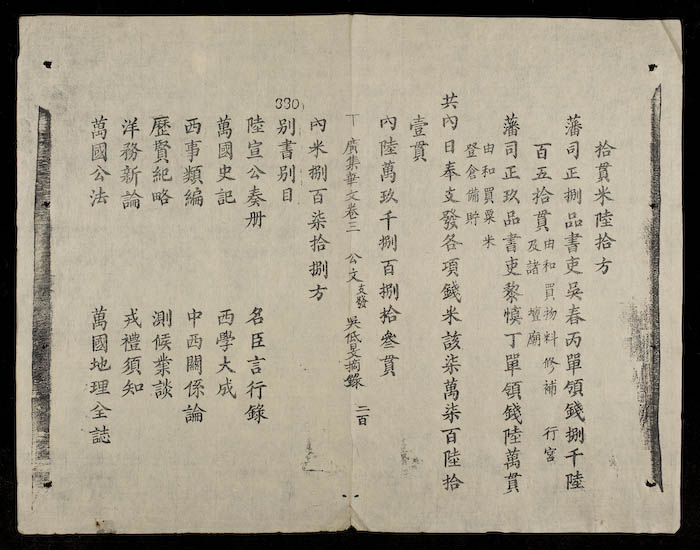 拾貫米陸拾方
藩司正捌品書吏吳春丙單領錢捌千陸
百五拾貫由和買物料修補行宮
及諸壇廟
藩司正玖品書吏黎慎丁單領錢陸萬貫
由和買粟米
登倉備貯
共內日奉支發各項錢米該柒萬柒百陸拾
壹貫
內陸萬玖千捌百捌拾叄貫
丁廣集舉文卷三 公文支發 吳低旻摘錄 二百
330
內米捌百柒拾捌方
別書別目
陸宣公奏册 名臣言行錄
萬國史記 西學大成
西事類編 中西關係論
歷賢紀略 測候叢談
洋務新論 戎禮須知
萬國公法 萬國地理全誌